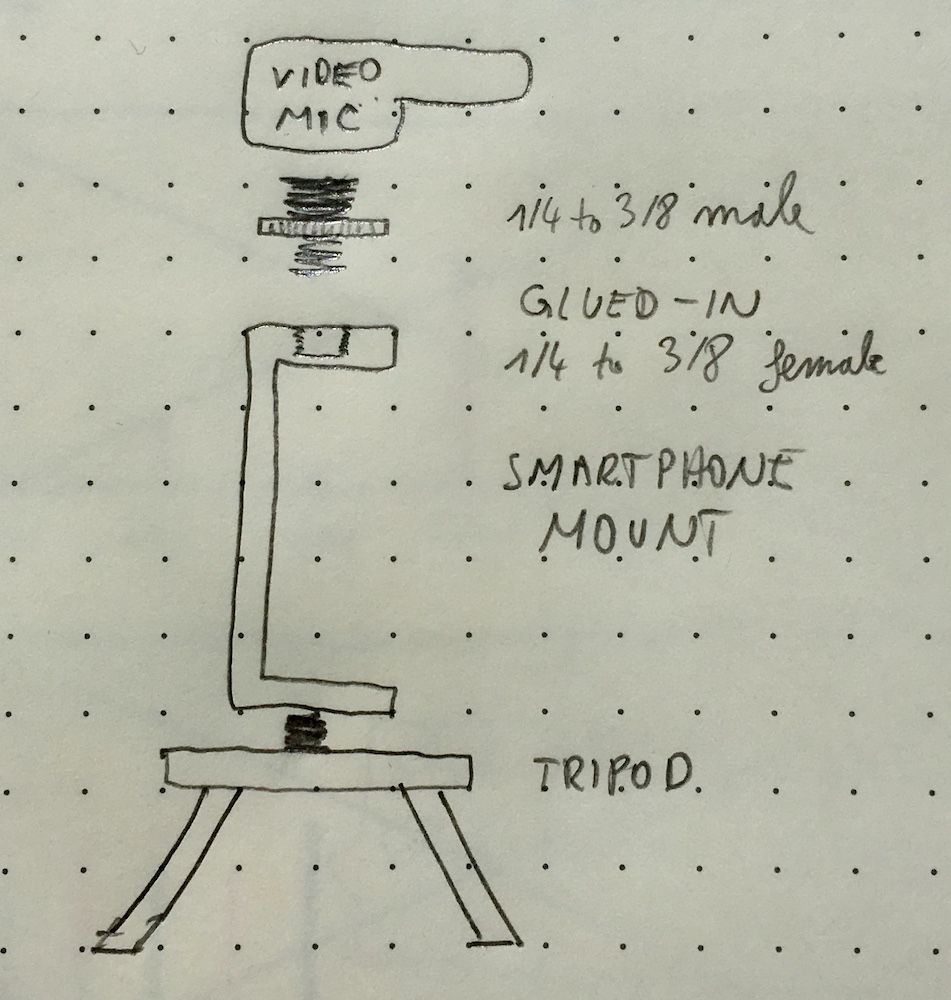 VIDEO
MIC
1/4 to 3/8 male
GLUED-IN
1/4 to 3/8 female
SMARTPHONE
MOUNT
TRIPOD